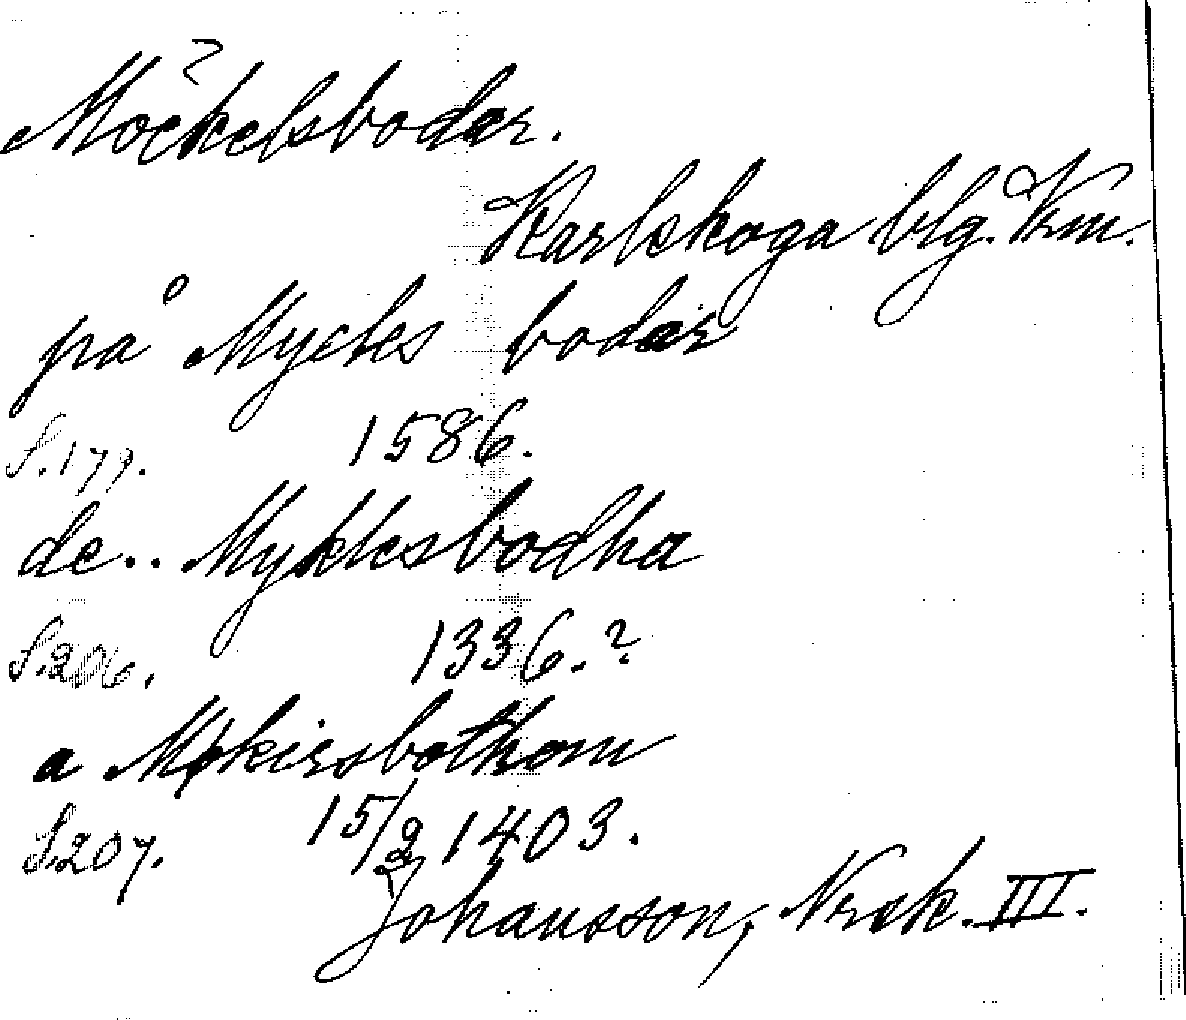 Möckelsboder.
Karlskoga blg. Vrm.
på Myckles boder
S. 179. 1586.
de.. Myklesbodha
S. 206. 1336.?
a Møkirsbothom
S. 207. 15/2 1403.
Johansson, Nrsk. III.